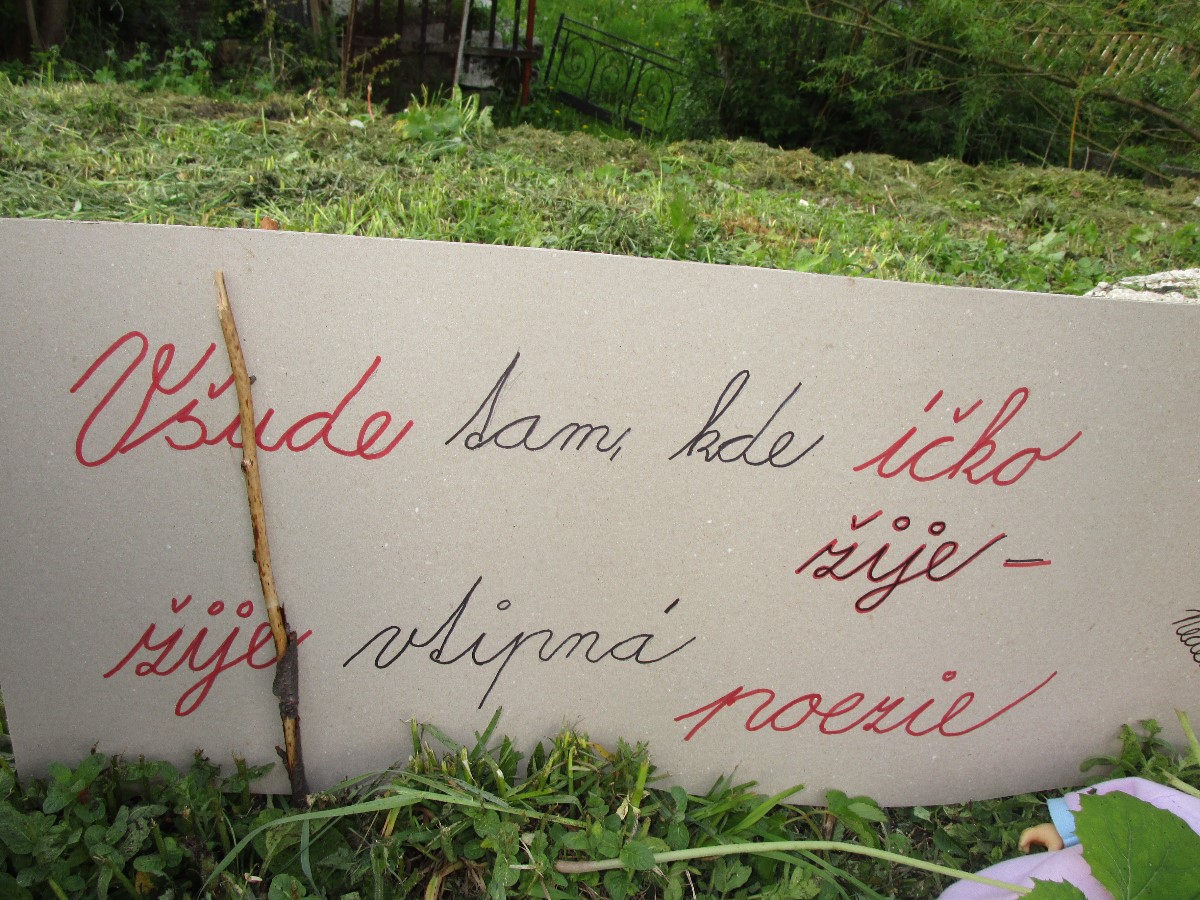 Všude tam, kde íčko
žije –
žije vtipná
poezie